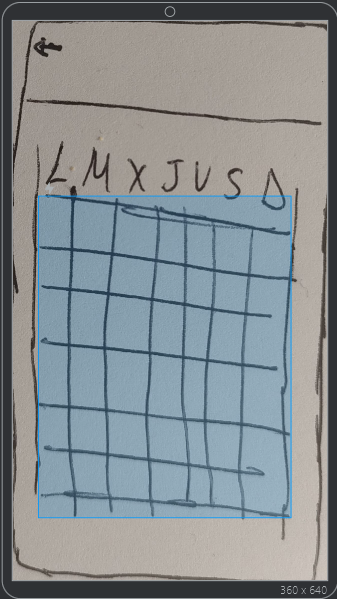 L M X J V S D
360 x 640